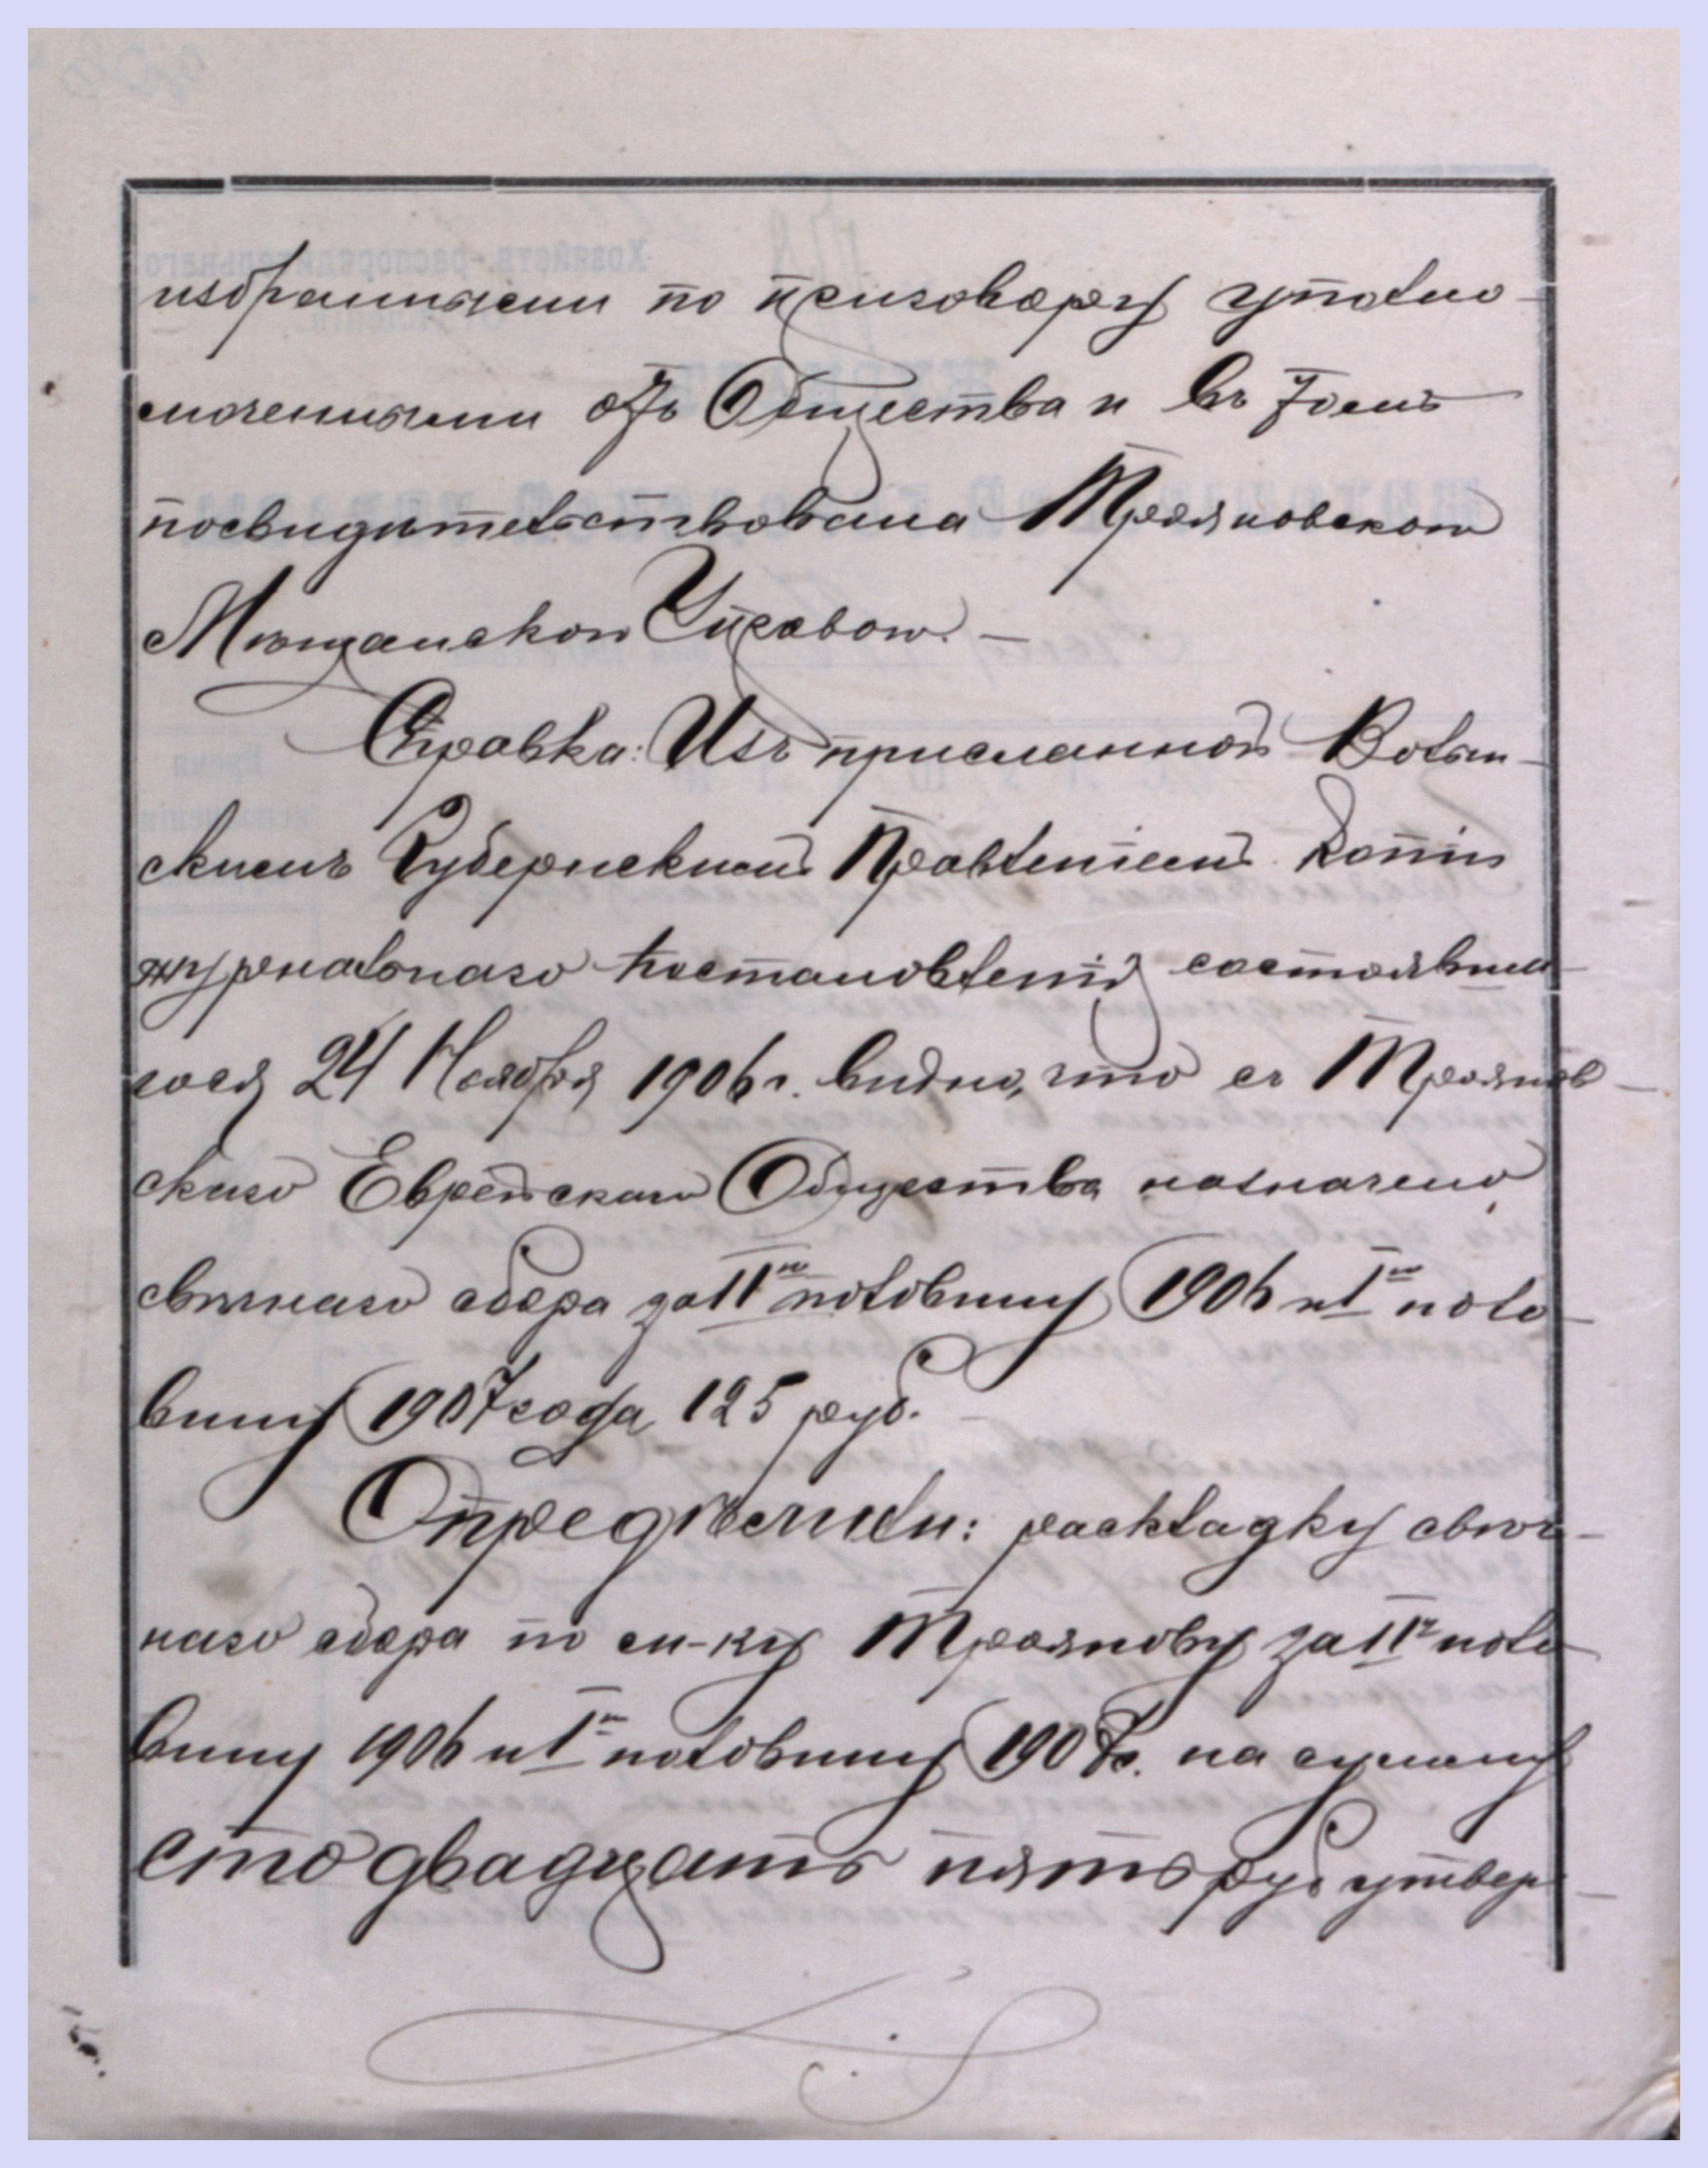 избранными по приговору уполно-
моченными отъ Общества и въ томъ
посвидѣтельствована Трояновскою
Мѣщанскою Управою. —
Справка: Изъ присланной Волын-
скимъ Губернскимъ Правленіемъ копіи
журнальнаго постановленія состоявша-
гося 24 Ноября 1906 г. видно, что съ Троянов-
скаго Еврейскаго Общества назначено
свѣчнаго сбора за II ю половину 1906 и I ю поло-
вину 1907 года 125 руб. —
Опредѣлили: раскладку свѣч-
наго сбора по м-ку Троянову за II ю поло-
вину 1906 и I ю половину 1907 г. на сумму
сто двадцать пять руб утвер-